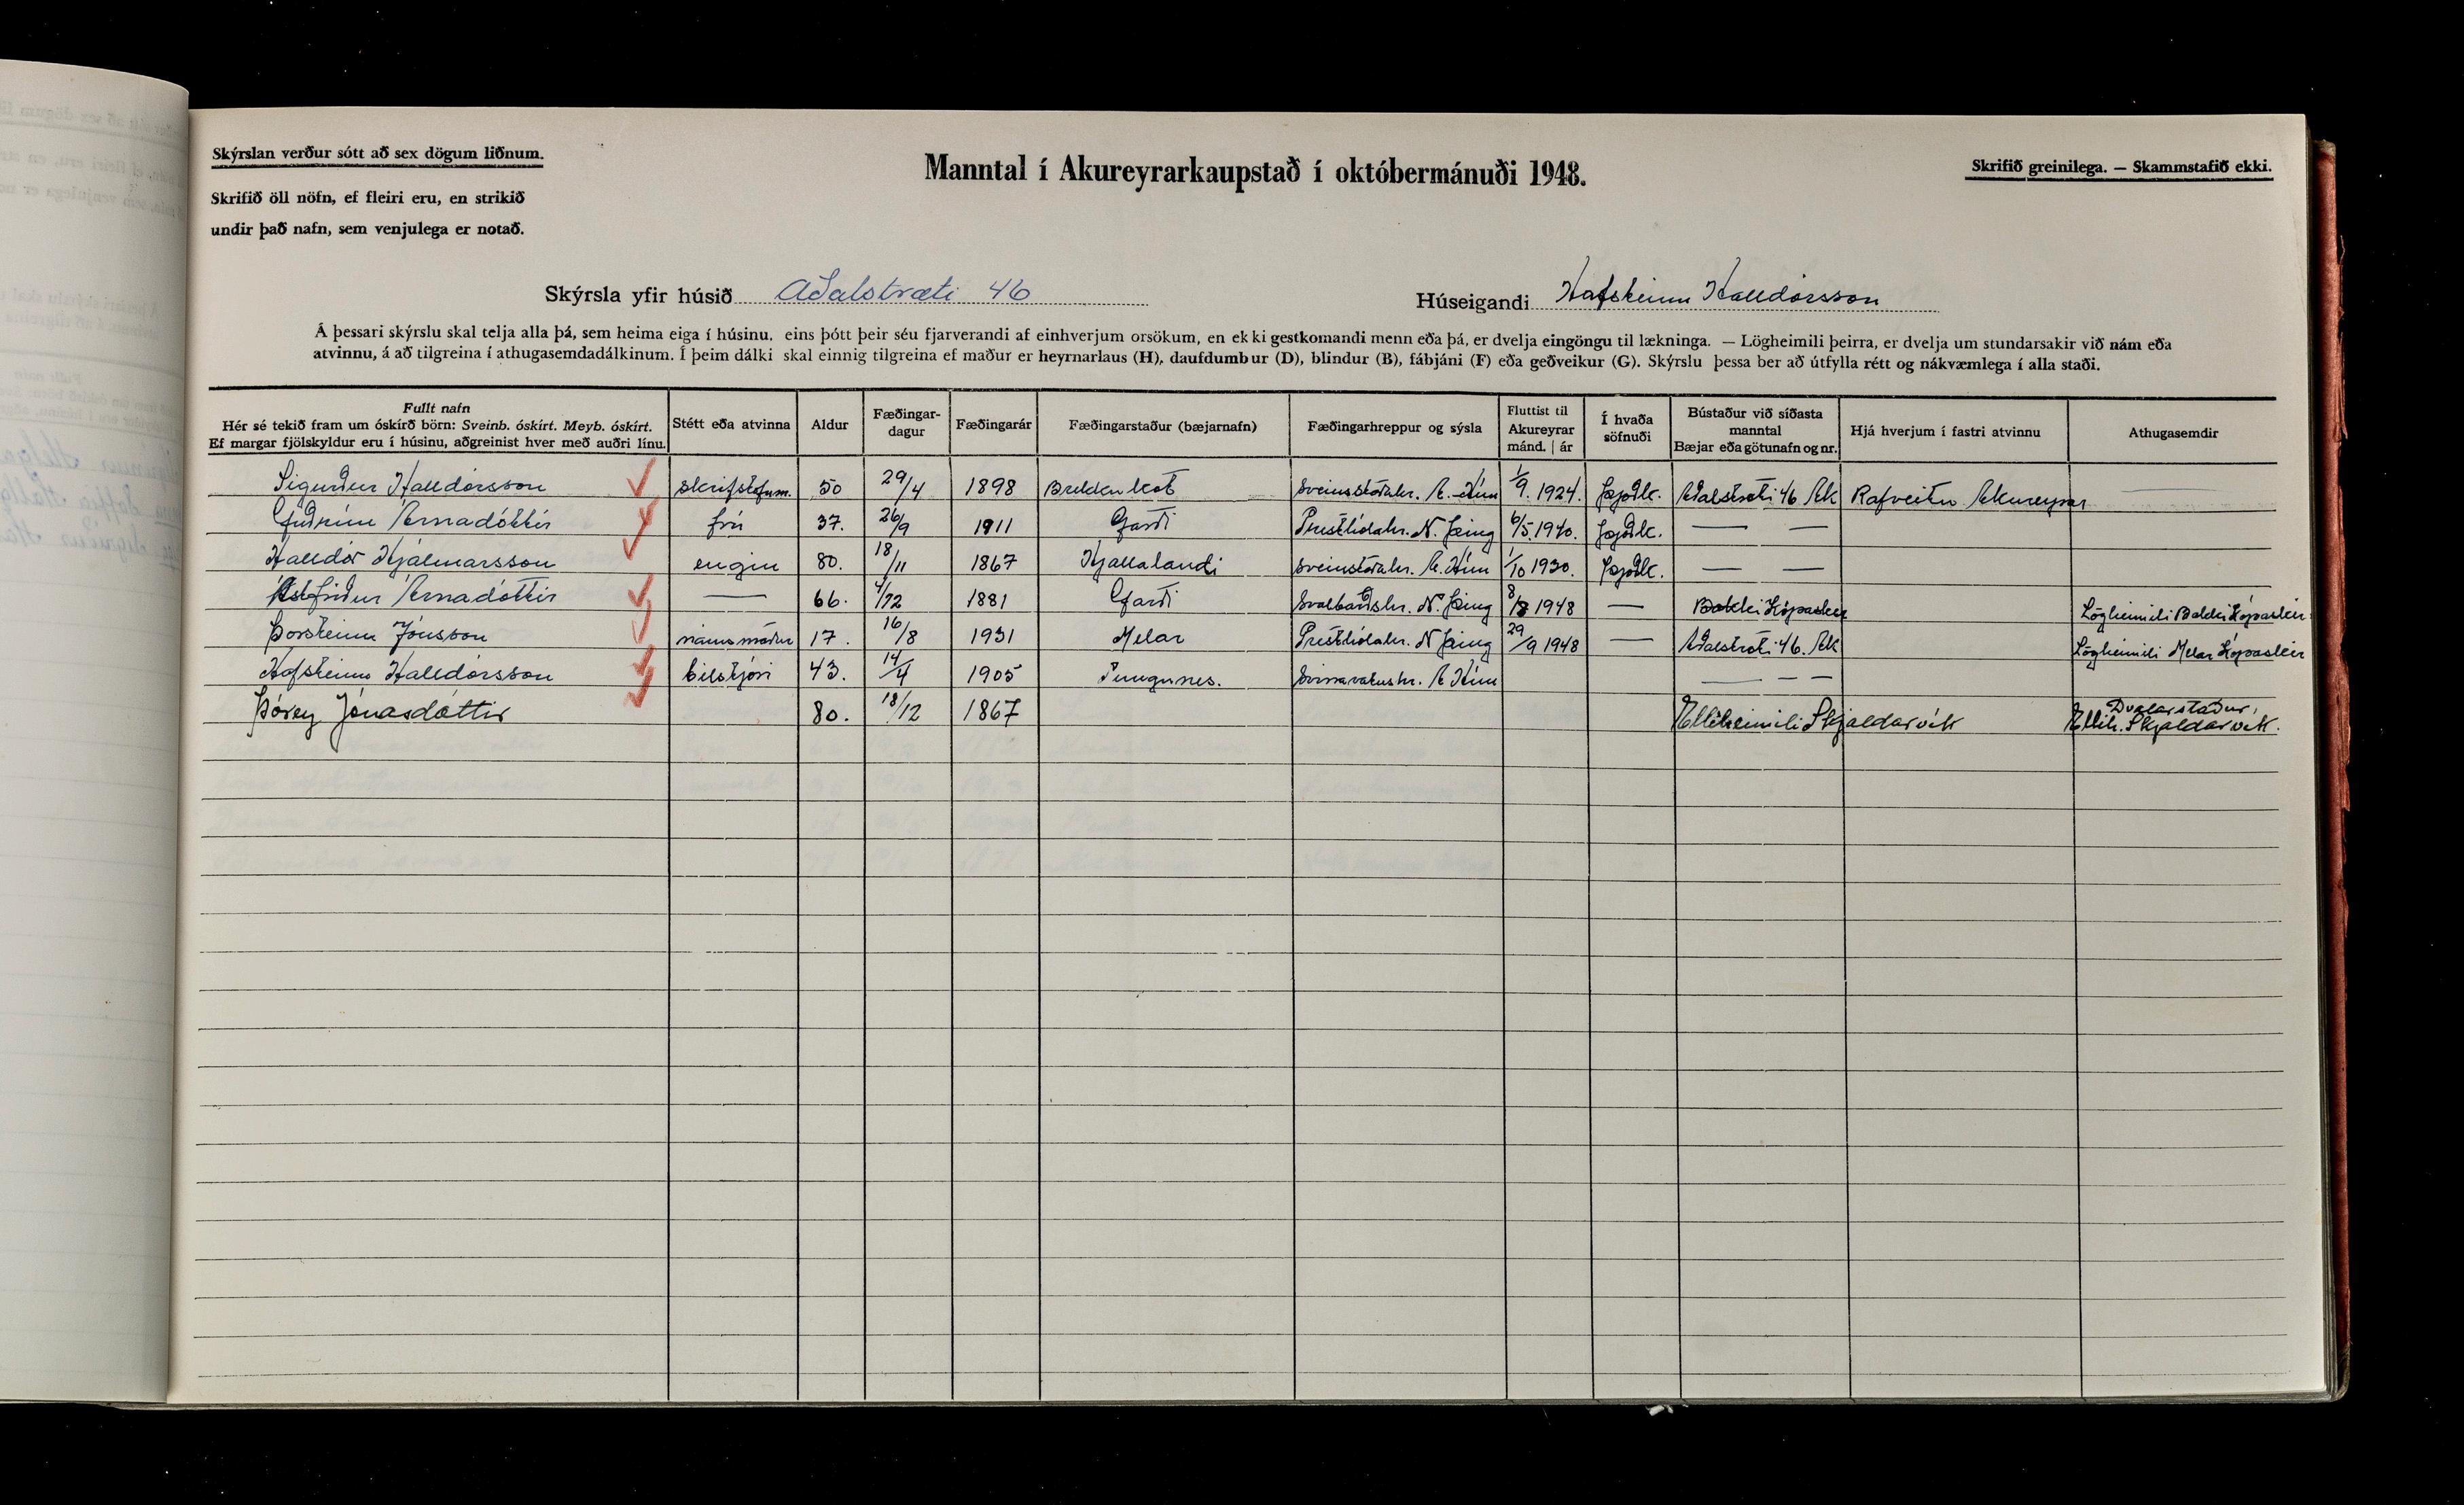 Skýrslan verður sótt að sex dögum liðnum.
Skrifið öll nöfn, ef fleiri eru, en strikið
undir það nafn, sem venjulega er notað.
Manntal í Akureyrarkaupstað í októbermánuði 1948.
Skrifið greinilega. — Skammstafið ekki.
Skýrsla yfir húsið Aðalstræti 46
Húseigandi Hafsteinn Halldórsson
Á þessari skýrslu skal telja alla þá, sem heima eiga í húsinu, eins þótt þeir séu fjarverandi af einhverjum orsökum, en ekki gestkomandi menn eða þá, er dvelja eingöngu til lækninga. — Lögheimili þeirra, er dvelja um stundarsakir við nám eða
atvinnu, á að tilgreina í athugasemdadálkinum. Í þeim dálki skal einnig tilgreina ef maður er heyrnarlaus (H), daufdumbur (D), blindur (B), fábjáni (F) eða geðveikur (G). Skýrslu þessa ber að útfylla rétt og nákvæmlega í alla staði.
Fullt nafn
Hér sé tekið fram um óskírð börn: Sveinb. óskírt. Meyb. óskírt.
Ef margar fjölskyldur eru í húsinu, aðgreinist hver með auðri línu.
Stétt eða atvinna
Aldur
Fæðingar-
dagur
Fæðingarár
Fæðingarstaður (bæjarnafn)
Fæðingarhreppur og sýsla
Fluttist til
Akureyrar
mánd. | ár
Í hvaða
söfnuði
Bústaður við síðasta
manntal
Bæjar eða götunafn og nr.
Hjá hverjum í fastri atvinnu
Athugasemdir
Sigurður Halldórsson skrifstofum. 50 29/4 1898 Sveinsstaðahr. A.-Hún 1/9. 1924. Þjóðk. Aðalstræti 46 Ak Rafveitu Akureyrar
Guðrún Árnadóttir frú 37. 26/9 1911 Garði Presthólahr. N. Þing 6/5. 1940. Þjóðk. — —
Halldór Hjálmarsson engin 80. 18/11 1867 Hjallalandi Sveinstaðahr. A. Hún 1/10 1930. Þjóðk. — —
Ástfríður Árnadóttir — 66. 4/12 1881 Garði Svalbarðshr. N. Þing 8/8 1948 — Bakki Kópasker Lögheimili Bakki Kópasker
Þorsteinn Jónsson námsmaður 17. 16/8 1931 Melar Presthólahr. N Þing 29/9 1948 — Aðalstræti 46. Ak Lögheimili Melar Kópasker
Hafsteinn Halldórsson bílstjóri 43. 14/4 1905 Tungunes. Svínavatnshr. A Hún — — —
Þórey Jónasdóttir 80. 18/12 1867 Elliheimili Skjaldarvík Dvalarstaður,
Ellih. Skjaldarvík.